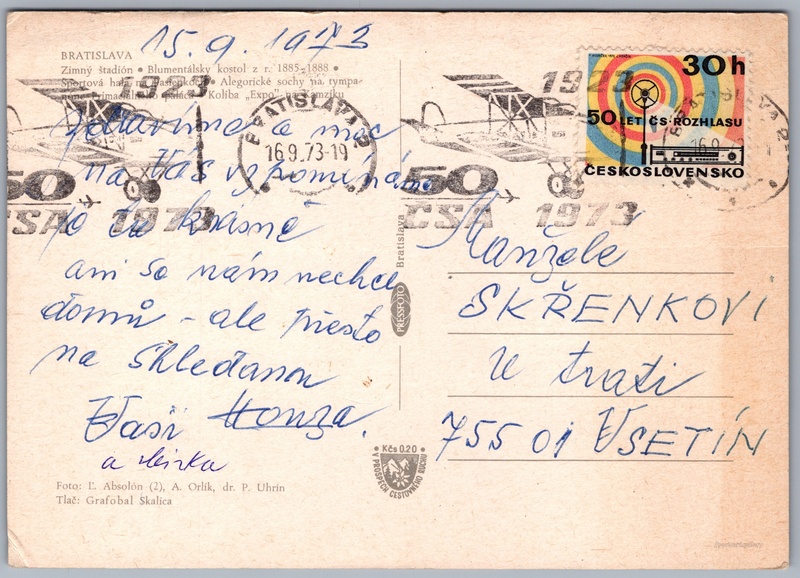 15.9.1973
BRATISLAVA
Zimný štadión • Blumentálsky kostol z r. 1885–1888 •
Športová hala na Pasienkoch • Alegorické sochy na tympa-
none Primaciálneho paláca • Koliba „Expo" na Kamzíku
Zdravíme a moc
na Vás vzpomínáme
Je tu krásně
ani se nám nechce
domů – ale přesto
na shledanou
Vaši Honza.
a
Foto: Ľ. Absolón (2), A. Orlík, dr. P. Uhrín
Tlač: Grafobal Skalica
1923
50
ČSA 1973
BRATISLAVA
16.9.73-19
1923
50
ČSA 1973
Bratislava
PRESSFOTO
Kčs 0.20
V PROSPECH CESTOVNÉHO RUCHU
30h
50 LET ČS·ROZHLASU
ČESKOSLOVENSKO
16.9
Manželé
SKŘENKOVI
U trati
755 01 VSETÍN